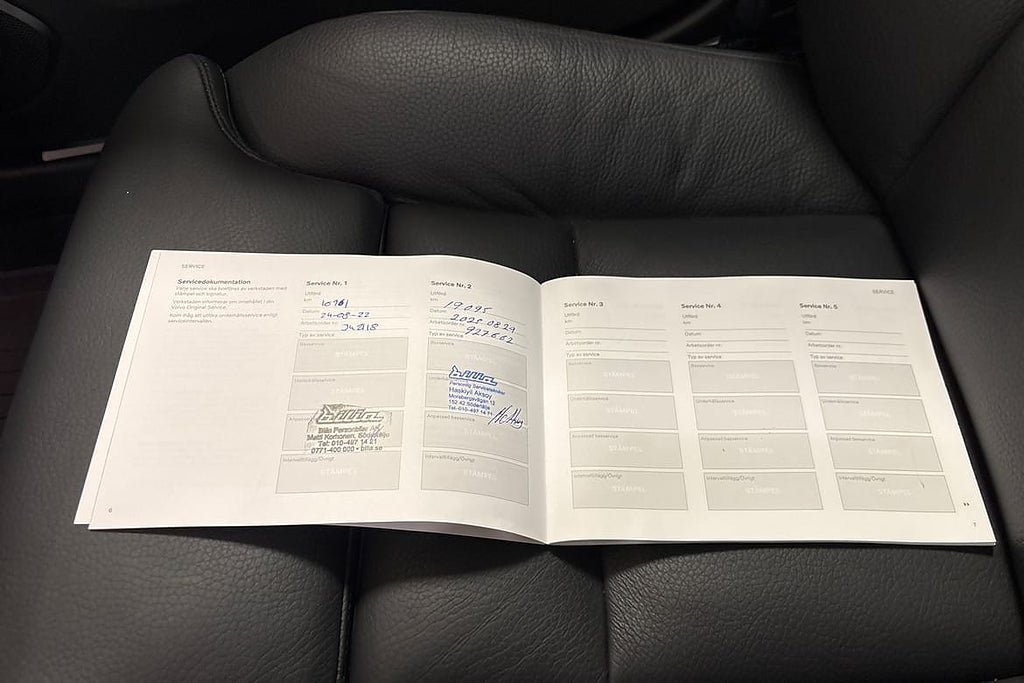 SERVICE
Servicedokumentation
Varje service ska bekräftas av verkstaden med
stämpel och signatur.
Verkstaden informerar om innehållet i din
Volvo Original Service.
Kom ihåg att utföra omkörhållsservice enligt
serviceintervallen.
6
Service Nr. 1
Utförd
km
Datum: 24-08-22
Arbetsorder nr.:
Typ av service
Basservice
STÄMPEL
Underhållsservice
STÄMPEL
Bilia
Bilia Personbilar
Matti Korhonen, Södertälje
Tel: 010-497 14 21
0771-400 000 • bilia.se
Intervalltillägg/Övrigt
STÄMPEL
Service Nr. 2
Utförd
km 19.095
Datum: 2025.08.29
Arbetsorder nr.: 927662
Typ av service
Basservice
STÄMPEL
Bilia
Personlig Servicetekniker
Haskiyli Aksoy
Morabergsvägen 12
152 42 Södertälje
Tel. 010-497 14 71
Anpassad basservice
STÄMPEL
Intervalltillägg/Övrigt
STÄMPEL
SERVICE
Service Nr. 3
Utförd
km
Datum:
Arbetsorder nr.:
Typ av service
Basservice
STÄMPEL
Underhållsservice
STÄMPEL
Anpassad basservice
STÄMPEL
Intervalltillägg/Övrigt
STÄMPEL
Service Nr. 4
Utförd
km
Datum:
Arbetsorder nr.:
Typ av service
Basservice
STÄMPEL
Underhållsservice
STÄMPEL
Anpassad basservice
STÄMPEL
Intervalltillägg/Övrigt
STÄMPEL
Service Nr. 5
Utförd
km
Datum:
Arbetsorder nr.:
Typ av service
Basservice
STÄMPEL
Underhållsservice
STÄMPEL
Anpassad basservice
STÄMPEL
Intervalltillägg/Övrigt
STÄMPEL
7